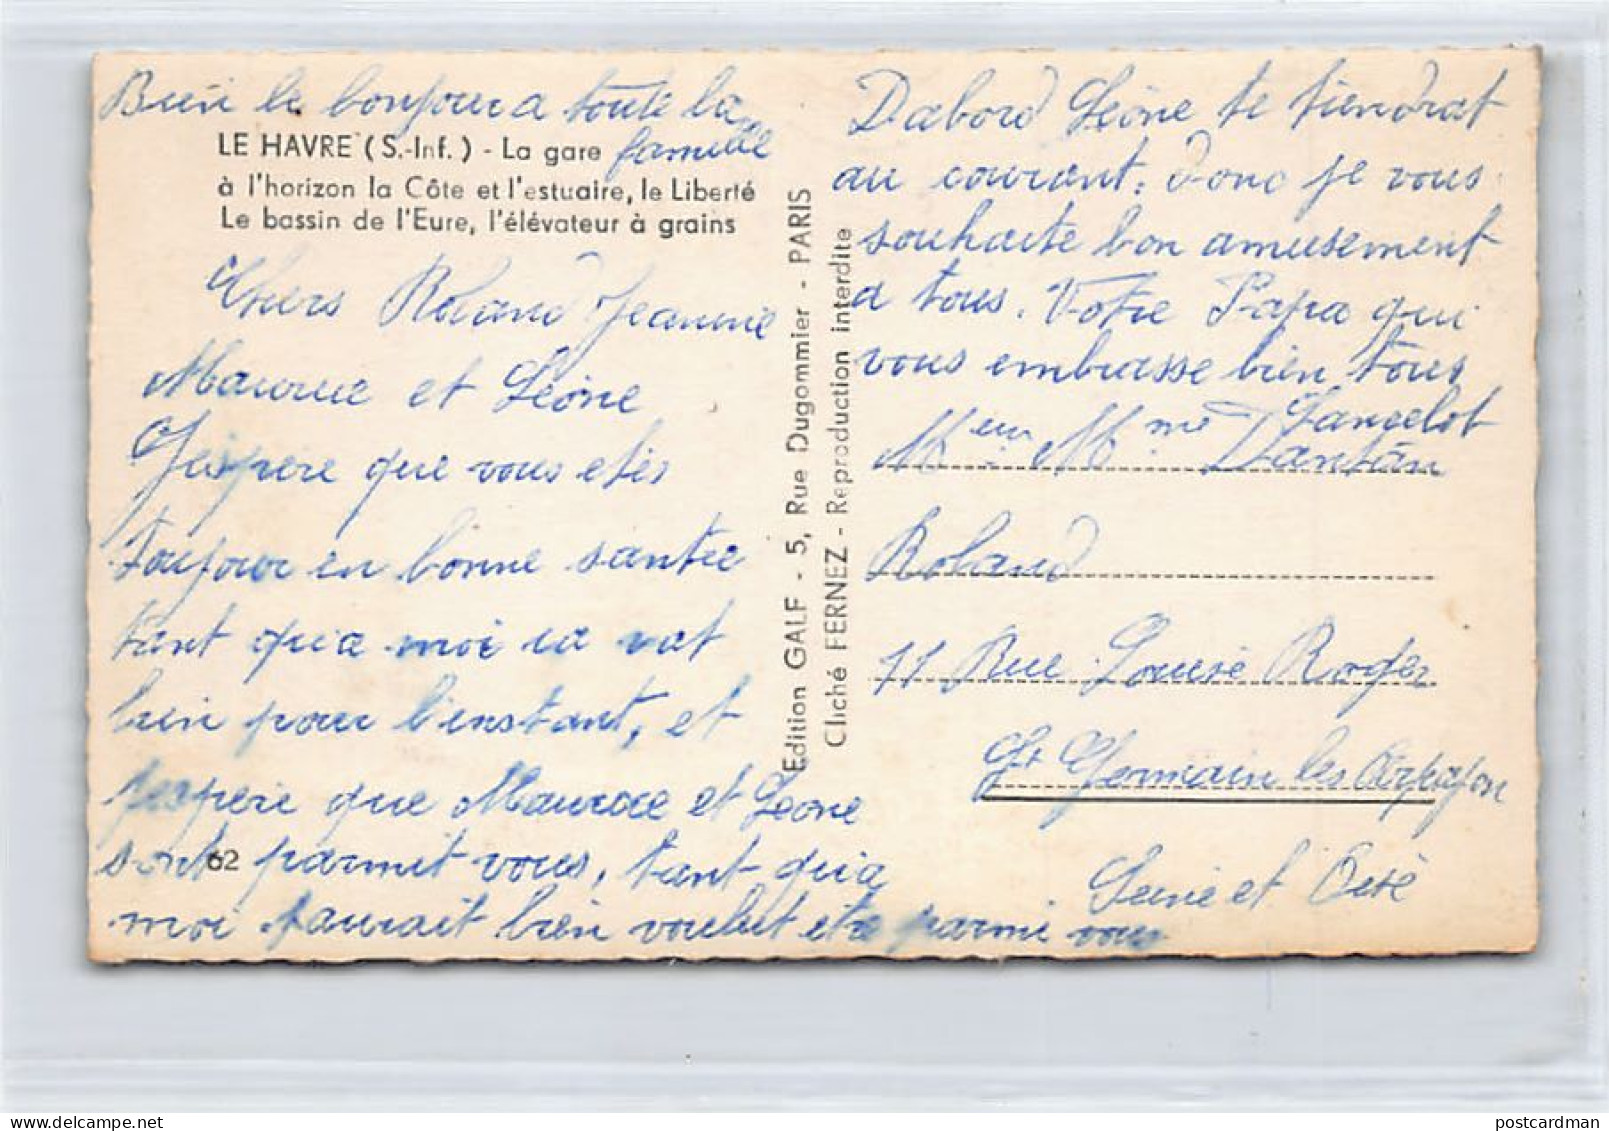 Bien le bonjour a toute la
famille
LE HAVRE (S.-Inf.) - La gare
à l'horizon la Côte et l'estuaire, le Liberté
Le bassin de l'Eure, l'élévateur à grains
Chers Roland Jeannie
Maurice et Léone
J'espere que vous etes
Toujour en bonne santée
tant qu'a moi ca vat
bien pour l'instant, et
jespere que Maurice et Leone
sont parmit vous, tant qu'a
moi jaurait bien voulut etre parmi vous
62
Edition GALF - 5, Rue Dugommier - PARIS
Cliché FERNEZ - Reproduction interdite
Dabord Léone te tiendrat
au courant, donc je vous
souhaite bon amusement
a tous. Votre Papa qui
vous embrasse bien tous
Lancelot
Meur Mme Dantan
Roland
11 Rue Louise Roger
St Germain les Arpajon
Seine et Oise
postcardman.com